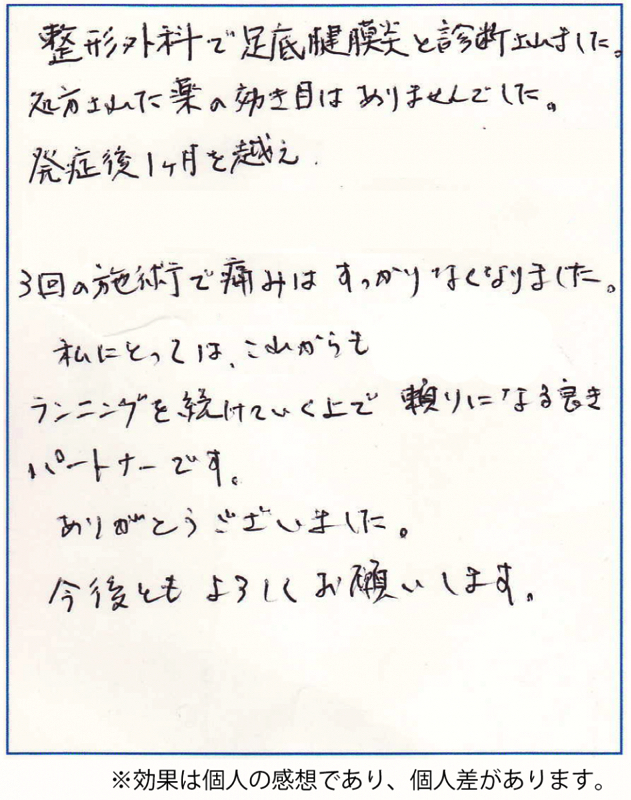 整形外科で足底腱膜炎と診断されました。
処方された薬の効き目はありませんでした。
発症後1ヶ月を越え
3回の施術で痛みはすっかりなくなりました。
私にとっては、これからも
ランニングを続けていく上で 頼りになる良き
パートナーです。
ありがとうございました。
今後とも よろしくお願いします。
※効果は個人の感想であり、個人差があります。